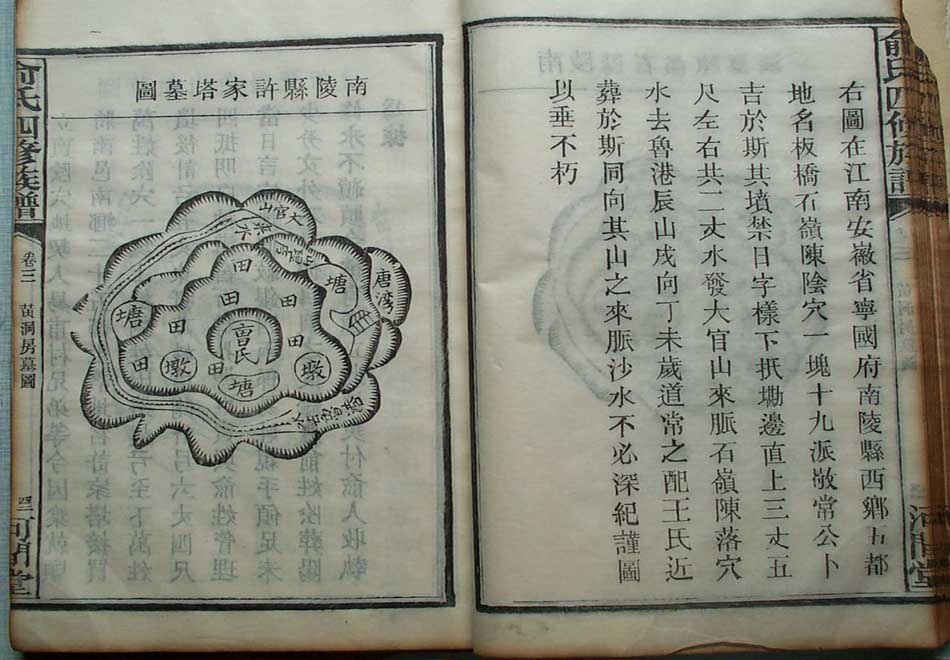 俞氏四修族譜
河間堂
右圖在江南安徽省寧國府南陵縣西鄉五都
地名板橋石嶺陳陰穴一塊十九派敬常公卜
吉於斯其墳禁目字樣下抵墈邊直上三丈五
尺左右共二丈水發大官山來脈石嶺陳落穴
水去魯港辰山戌向丁未歲道常之配王氏近
葬於斯同向其山之來脈沙水不必深紀謹圖
以垂不朽
南陵縣許家塔墓圖
大官山
來水
唐灣
塘
田
田
田
塘
田
曹氏
田
田
田
墩
塘
墩
俞氏四修族譜
卷三
黃洞房墓圖
四二
河間堂